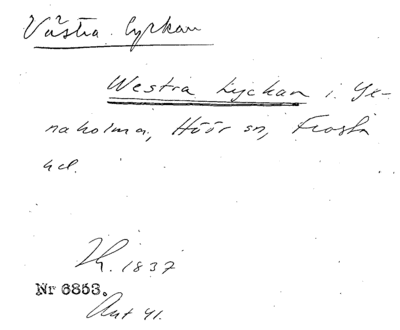 Västra lyckan
Westra Lyckan i. Ye-
naholma, Höör sn, Frosta
hd.
Th. 1837
Nr 6853.
Ant 41.